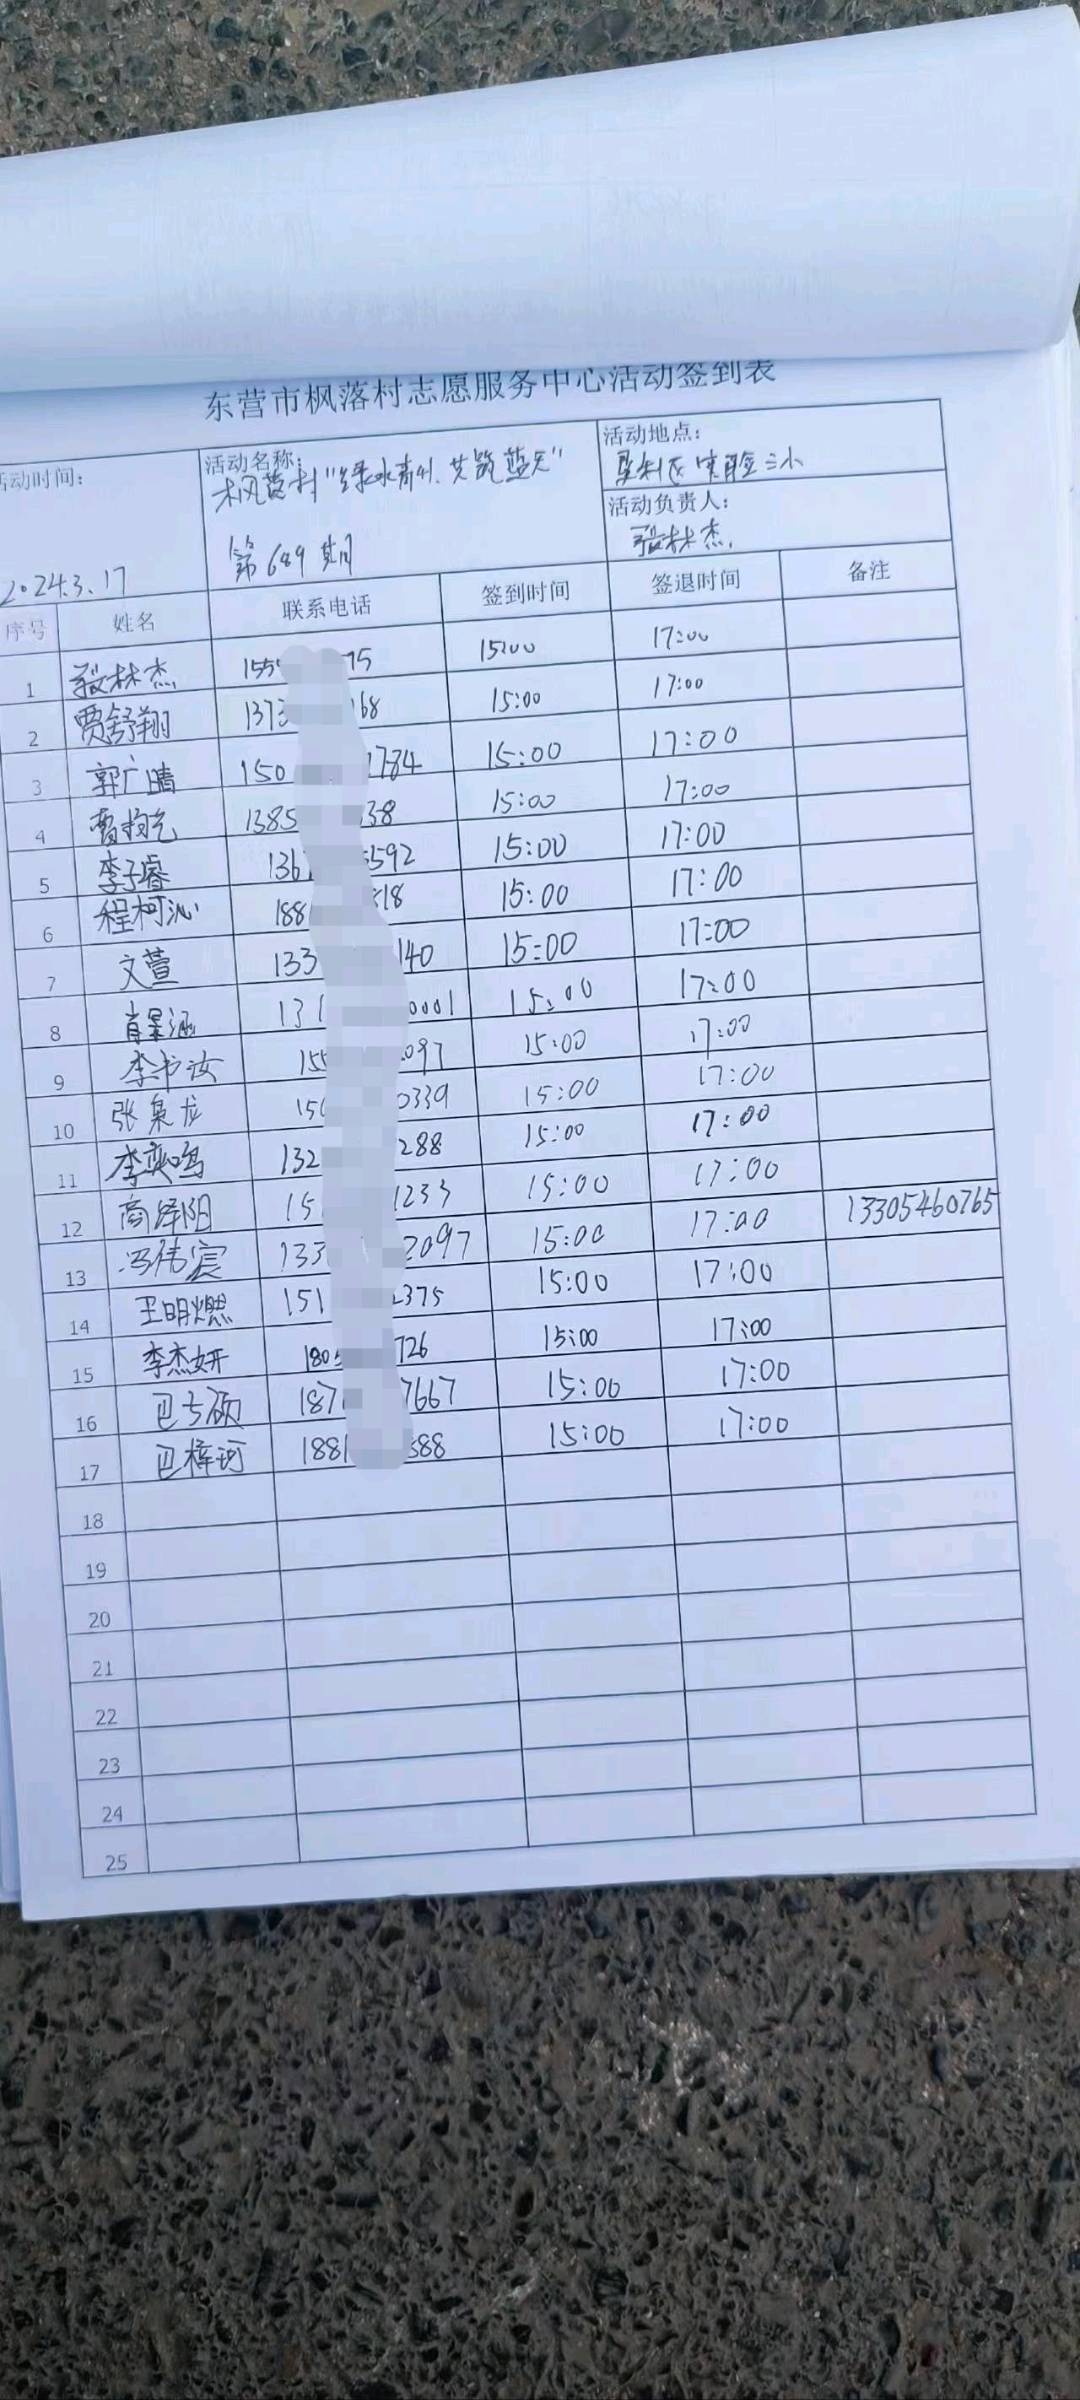 东营市枫落村志愿服务中心活动签到表
活动时间: 2024.3.17
活动名称: "绿水青山、共筑蓝天" 第689期
活动地点: 垦利区实验三小
活动负责人: 张林杰
序号 姓名 联系电话 签到时间 签退时间 备注
1 张林杰 155 75 15:00 17:00
2 贾舒翔 1373 168 15:00 17:00
3 郭广晴 150 1784 15:00 17:00
4 1385 38 15:00 17:00
5 李子睿 136 592 15:00 17:00
6 程柯沁 188 518 15:00 17:00
7 文萱 133 140 15:00 17:00
8 肖景涵 131 0001 15:00 17:00
9 李书汝 155 097 15:00 17:00
10 张枭龙 150 0339 15:00 17:00
11 李奕鸣 132 288 15:00 17:00
12 商泽阳 151 1233 15:00 17:00
13 冯伟宸 133 2097 15:00 17:00 13305460765
14 王明燃 151 2375 15:00 17:00
15 李杰妍 180 726 15:00 17:00
16 187 7667 15:00 17:00
17 巴梓珂 1881 588 15:00 17:00
18
19
20
21
22
23
24
25